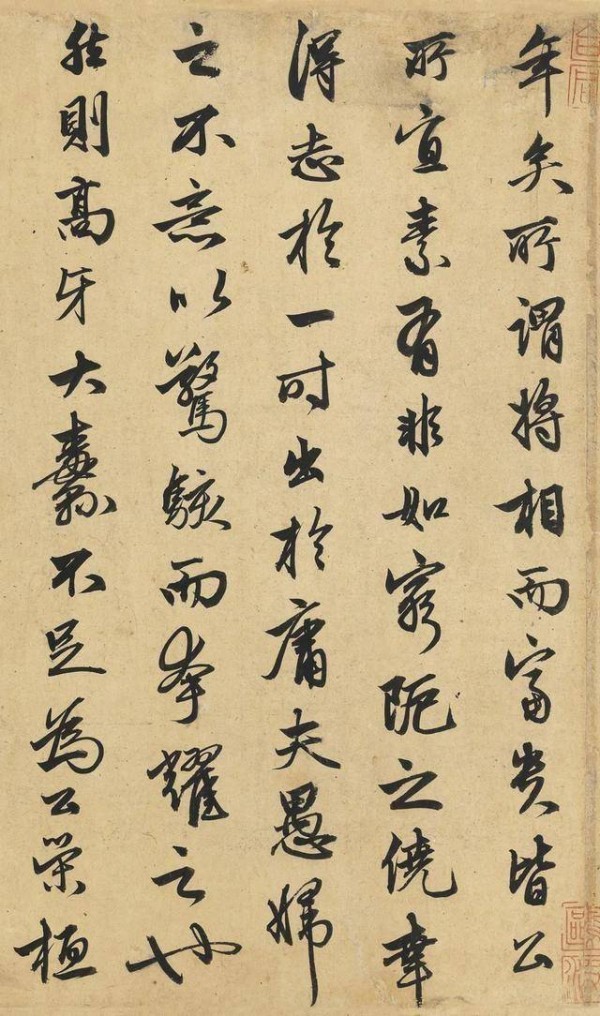 年矣所謂將相而富貴皆公
所宜素有非如窮阨之僥幸
得志於一时出於庸夫愚婦
之不意以驚駭而夸耀之也
然則髙牙大纛不足為公榮桓